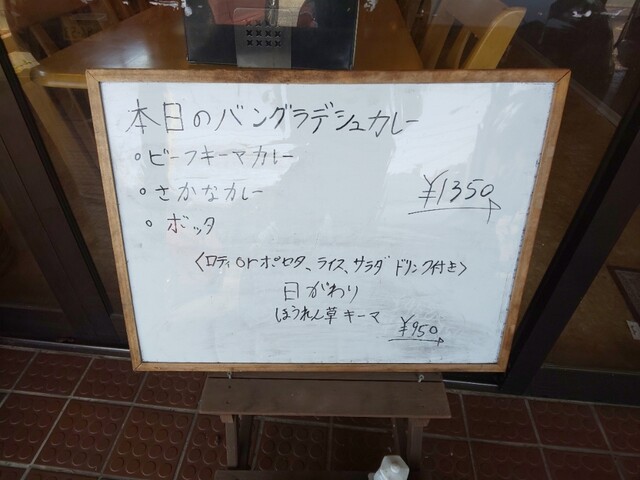 本日のバングラデシュカレー
○ビーフキーマカレー
○さかなカレー
¥1350
○ボッタ
〈ロティorポロタ、ライス、サラダ ドリンク付き〉
日がわり
ほうれん草キーマ
¥950